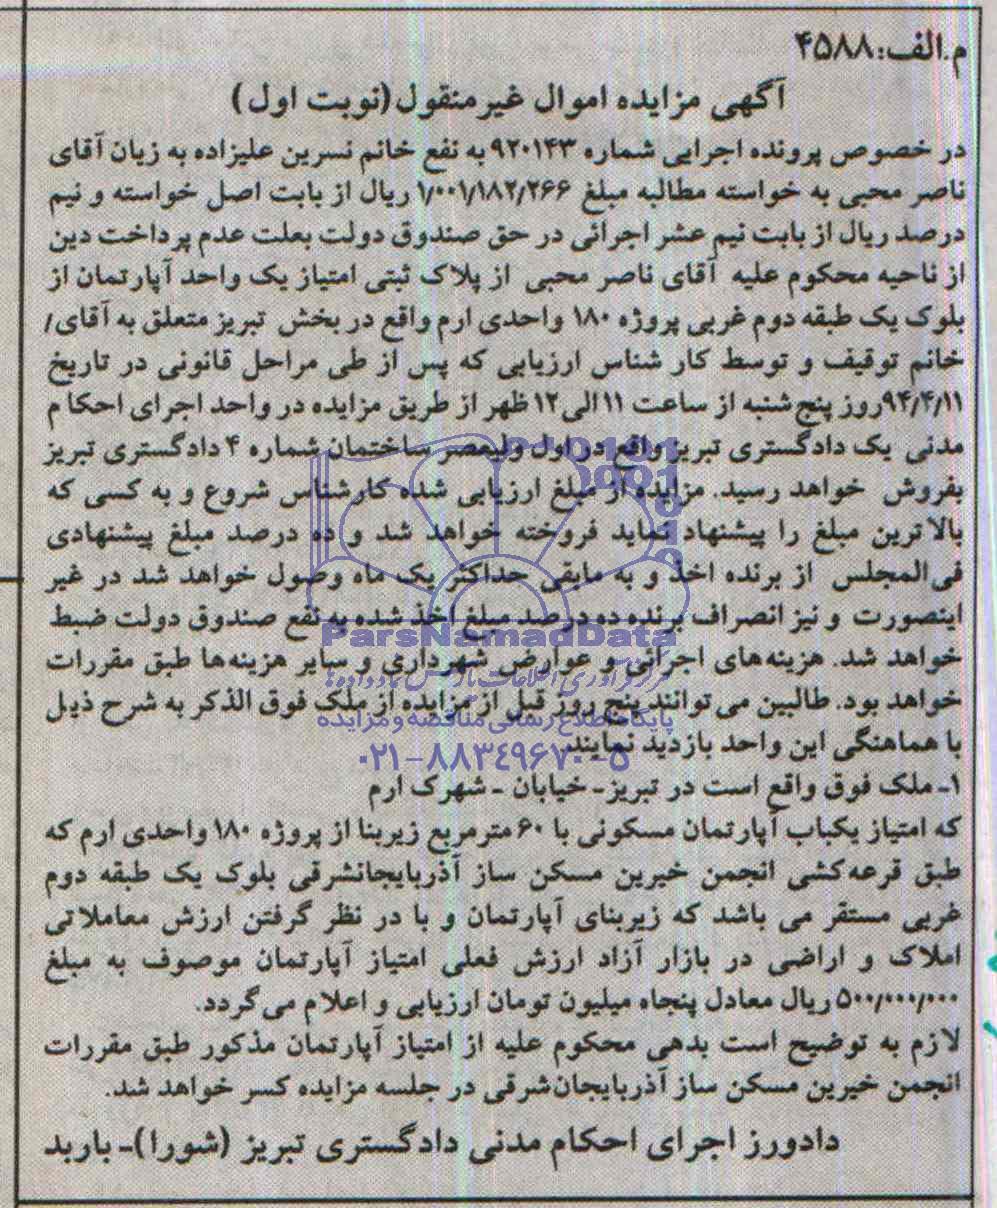 م.الف:۴۵۸۸
آگهی مزایده اموال غیرمنقول(نوبت اول)
در خصوص پرونده اجرایی شماره ۹۲۰۱۴۳ به نفع خانم نسرین علیزاده به زیان آقای
ناصر محبی به خواسته مطالبه مبلغ ۱/۰۰۱/۱۸۲/۲۶۶ ریال از بابت اصل خواسته و نیم
درصد ریال از بابت نیم عشر اجرائی در حق صندوق دولت بعلت عدم پرداخت دین
از ناحیه محکوم علیه آقای ناصر محبی از پلاک ثبتی امتیاز یک واحد آپارتمان از
بلوک یک طبقه دوم غربی پروژه ۱۸۰ واحدی ارم واقع در بخش تبریز متعلق به آقای/
خانم توقیف و توسط کار شناس ارزیابی که پس از طی مراحل قانونی در تاریخ
۹۴/۴/۱۱روز پنج شنبه از ساعت ۱۱ الی ۱۲ ظهر از طریق مزایده در واحد اجرای احکام
مدنی یک دادگستری تبریز واقع در اول ولیعصر ساختمان شماره ۴ دادگستری تبریز
بفروش خواهد رسید. مزایده از مبلغ ارزیابی شده کارشناس شروع و به کسی که
بالاترین مبلغ را پیشنهاد نماید فروخته خواهد شد و ده درصد مبلغ پیشنهادی
فی‌المجلس از برنده اخذ و به مابقی حداکثر یک ماه وصول خواهد شد در غیر
اینصورت و نیز انصراف برنده ده درصد مبلغ اخذ شده به نفع صندوق دولت ضبط
ParsNamadData
خواهد شد. هزینه‌های اجرائی و عوارض شهرداری و سایر هزینه‌ها طبق مقررات
مرکز فرآوری اطلاعات پارس نماد داده‌ها
خواهد بود. طالبین می‌توانند پنج روز قبل از مزایده از ملک فوق الذکر به شرح ذیل
پایگاه اطلاع رسانی مناقصه و مزایده
با هماهنگی این واحد بازدید نمایند.
۰۲۱-۸۸۳۴۹۶۷۰-۵
۱ـ ملک فوق واقع است در تبریز ـ خیابان ـ شهرک ارم
که امتیاز یکباب آپارتمان مسکونی با ۶۰ مترمربع زیربنا از پروژه ۱۸۰ واحدی ارم که
طبق قرعه‌کشی انجمن خیرین مسکن ساز آذربایجانشرقی بلوک یک طبقه دوم
غربی مستقر می باشد که زیربنای آپارتمان و با در نظر گرفتن ارزش معاملاتی
املاک و اراضی در بازار آزاد ارزش فعلی امتیاز آپارتمان موصوف به مبلغ
۵۰۰/۰۰۰/۰۰۰ ریال معادل پنجاه میلیون تومان ارزیابی و اعلام می‌گردد.
لازم به توضیح است بدهی محکوم علیه از امتیاز آپارتمان مذکور طبق مقررات
انجمن خیرین مسکن ساز آذربایجان‌شرقی در جلسه مزایده کسر خواهد شد.
دادورز اجرای احکام مدنی دادگستری تبریز (شورا)ـ باربد